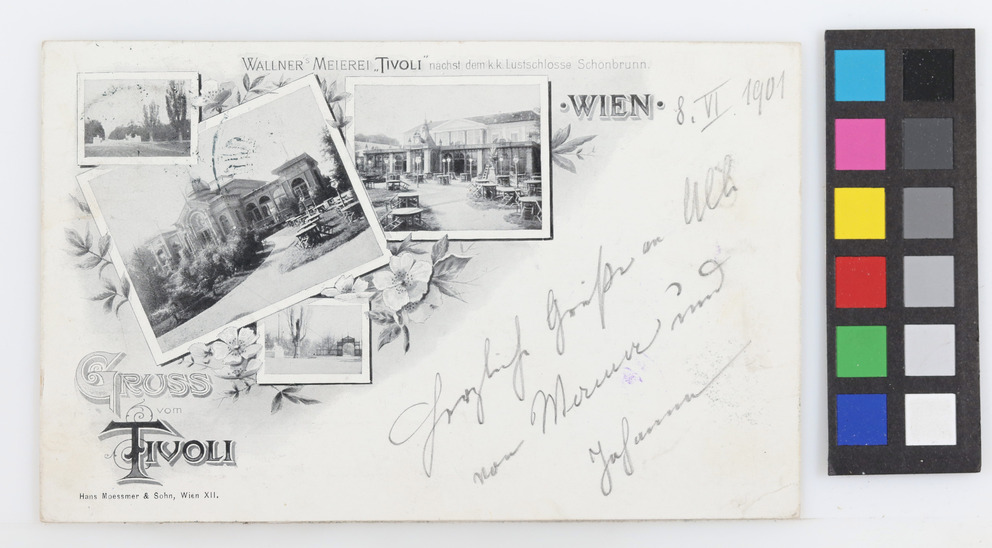 WALLNER'S MEIEREI „TIVOLI" nächst dem k.k. Lustschlosse Schönbrunn.
·WIEN·
8. VI. 1901
Herzliche Grüße an Alle
von Werner und
Johanna
GRUSS
vom
TIVOLI
Hans Moessmer & Sohn, Wien XII.